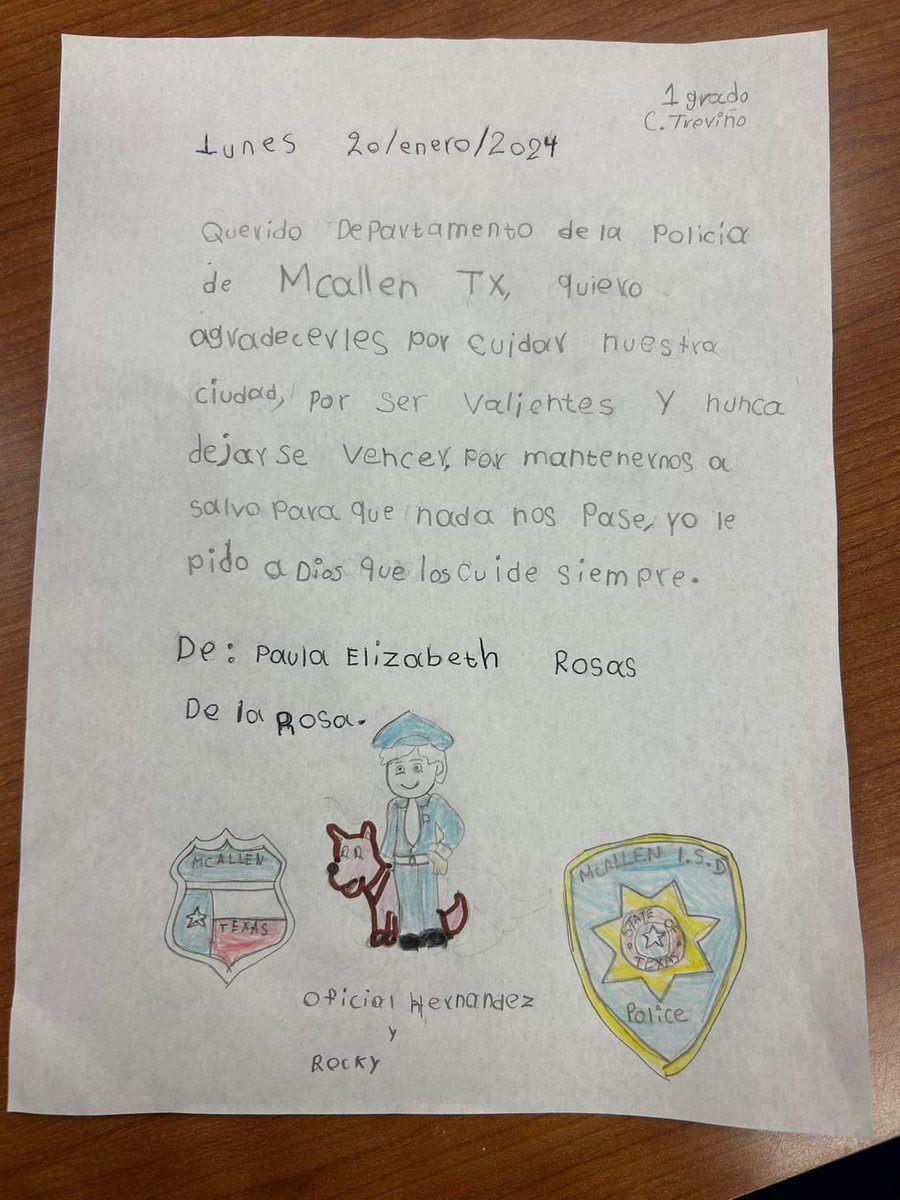 1 grado
C. Treviño
Lunes 20/enero/2024
Querido Departamento de la Policía
de Mcallen TX, quiero
agradecerles por cuidar nuestra
ciudad, por ser valientes y nunca
dejarse vencer, por mantenernos a
salvo para que nada nos pase, yo le
pido a Dios que los cuide siempre.
De: Paula Elizabeth Rosas
De la Rosa.
MCALLEN
TEXAS
McALLEN I.S.D
STATE OF
TEXAS
Police
Oficial Hernandez
y
Rocky